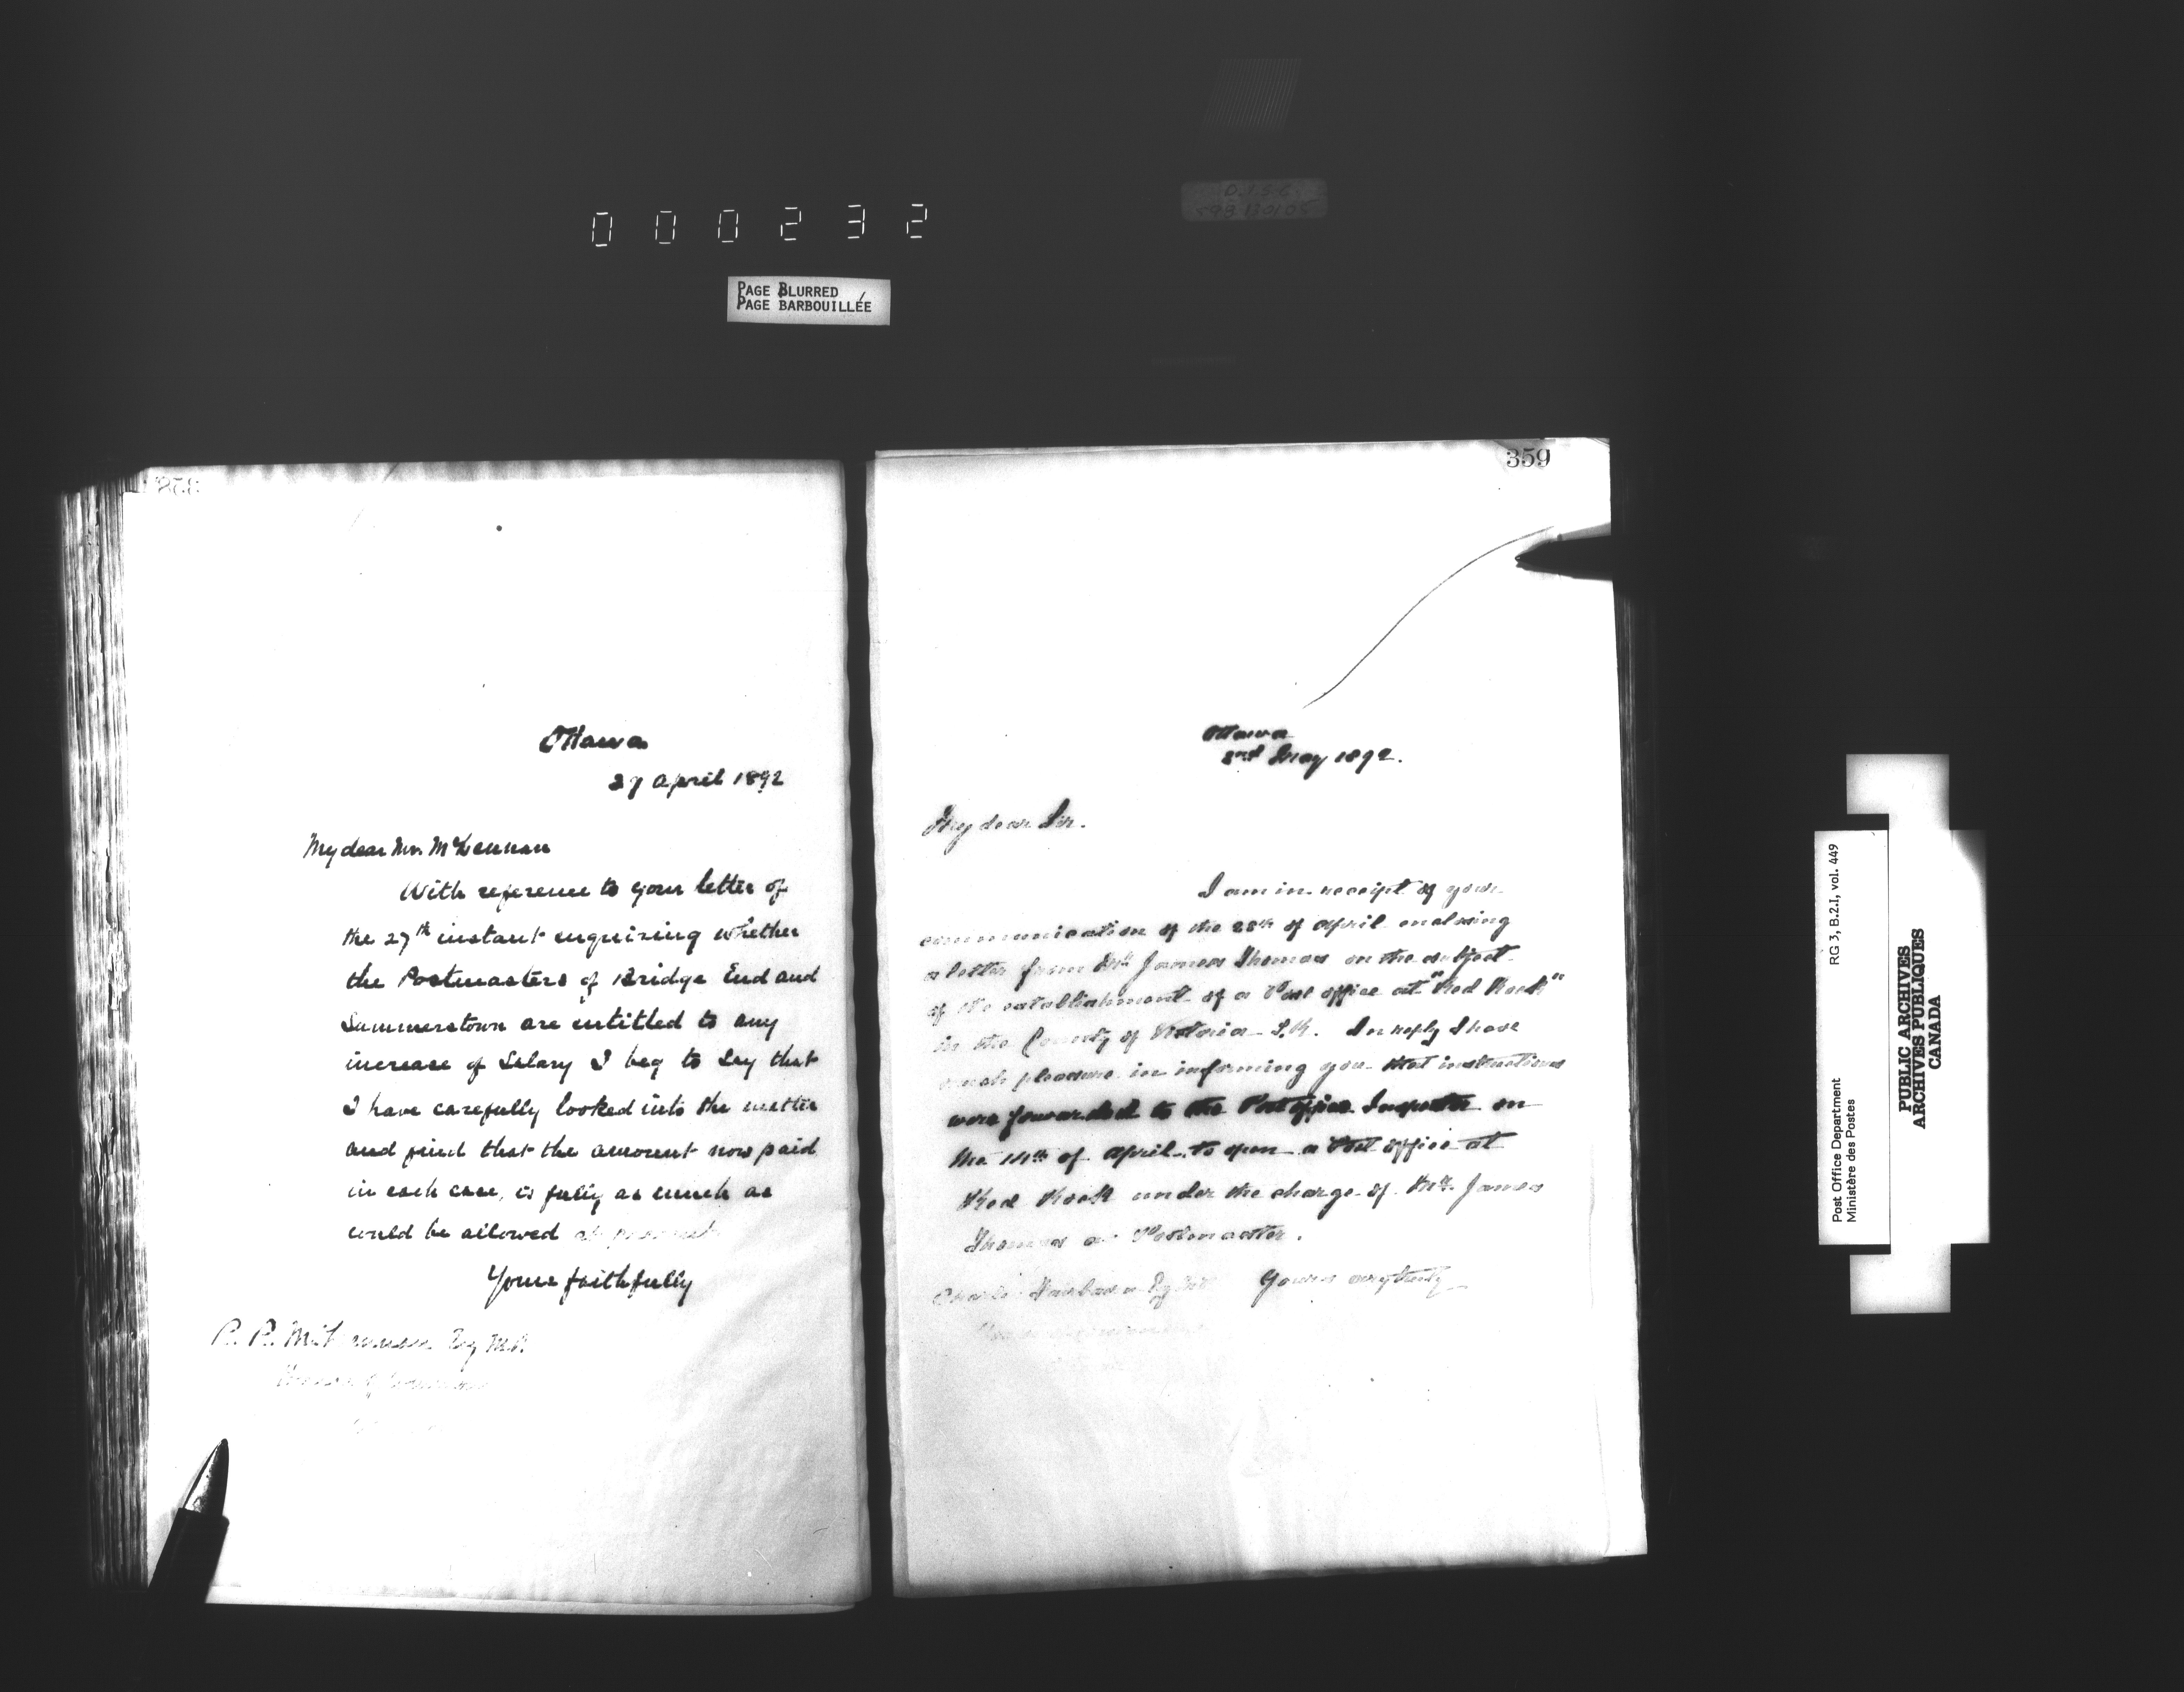 000232
PAGE BLURRED
PAGE BARBOUILLÉE
358
Ottawa
27 April 1892
My dear Mr. McLennan
With reference to your letter of
the 27th instant enquiring whether
the Postmasters of Bridge End and
Summerstown are entitled to any
increase of Salary I beg to say that
I have carefully looked into the matter
and find that the amount now paid
in each case, is fully as much as
could be allowed at present.
Yours faithfully
R. R. McLennan Esq M.P.
House of Commons
359
Ottawa
2nd May 1892.
My dear Sir.
I am in receipt of your
communication of the 28th of April enclosing
a letter from Mr James Thomas on the subject
of the establishment of a Post office at "Red Rock"
in the County of Victoria In reply I have
much pleasure in informing you that instructions
were forwarded to the Post office Inspector on
the 14th of April to open a Post office at
Red Rock under the charge of Mr. James
Thomas as Postmaster.
Yours very truly
Charles Fairbairn Esq M.P.
RG 3, B.2.I, vol. 449
Post Office Department
Ministère des Postes
PUBLIC ARCHIVES
ARCHIVES PUBLIQUES
CANADA